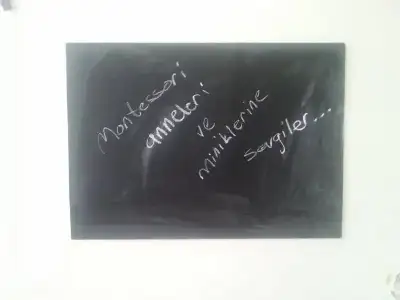 Montessori
anneleri
ve
miniklerine
sevgiler...